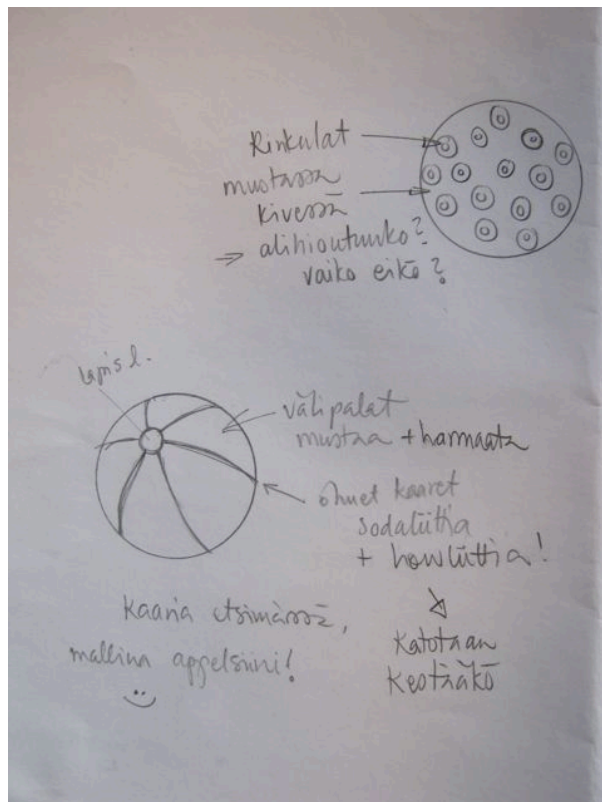 Rinkulat
mustassa
kivessä
⇒ alihioutuuko?
vaiko eikö?
lapis l.
välipalat
mustaa + harmaata
ohuet kaaret
sodaliittia
+ howliittia!
Katotaan
kestääkö
Kaaria etsimässä,
mallina appelsiini!